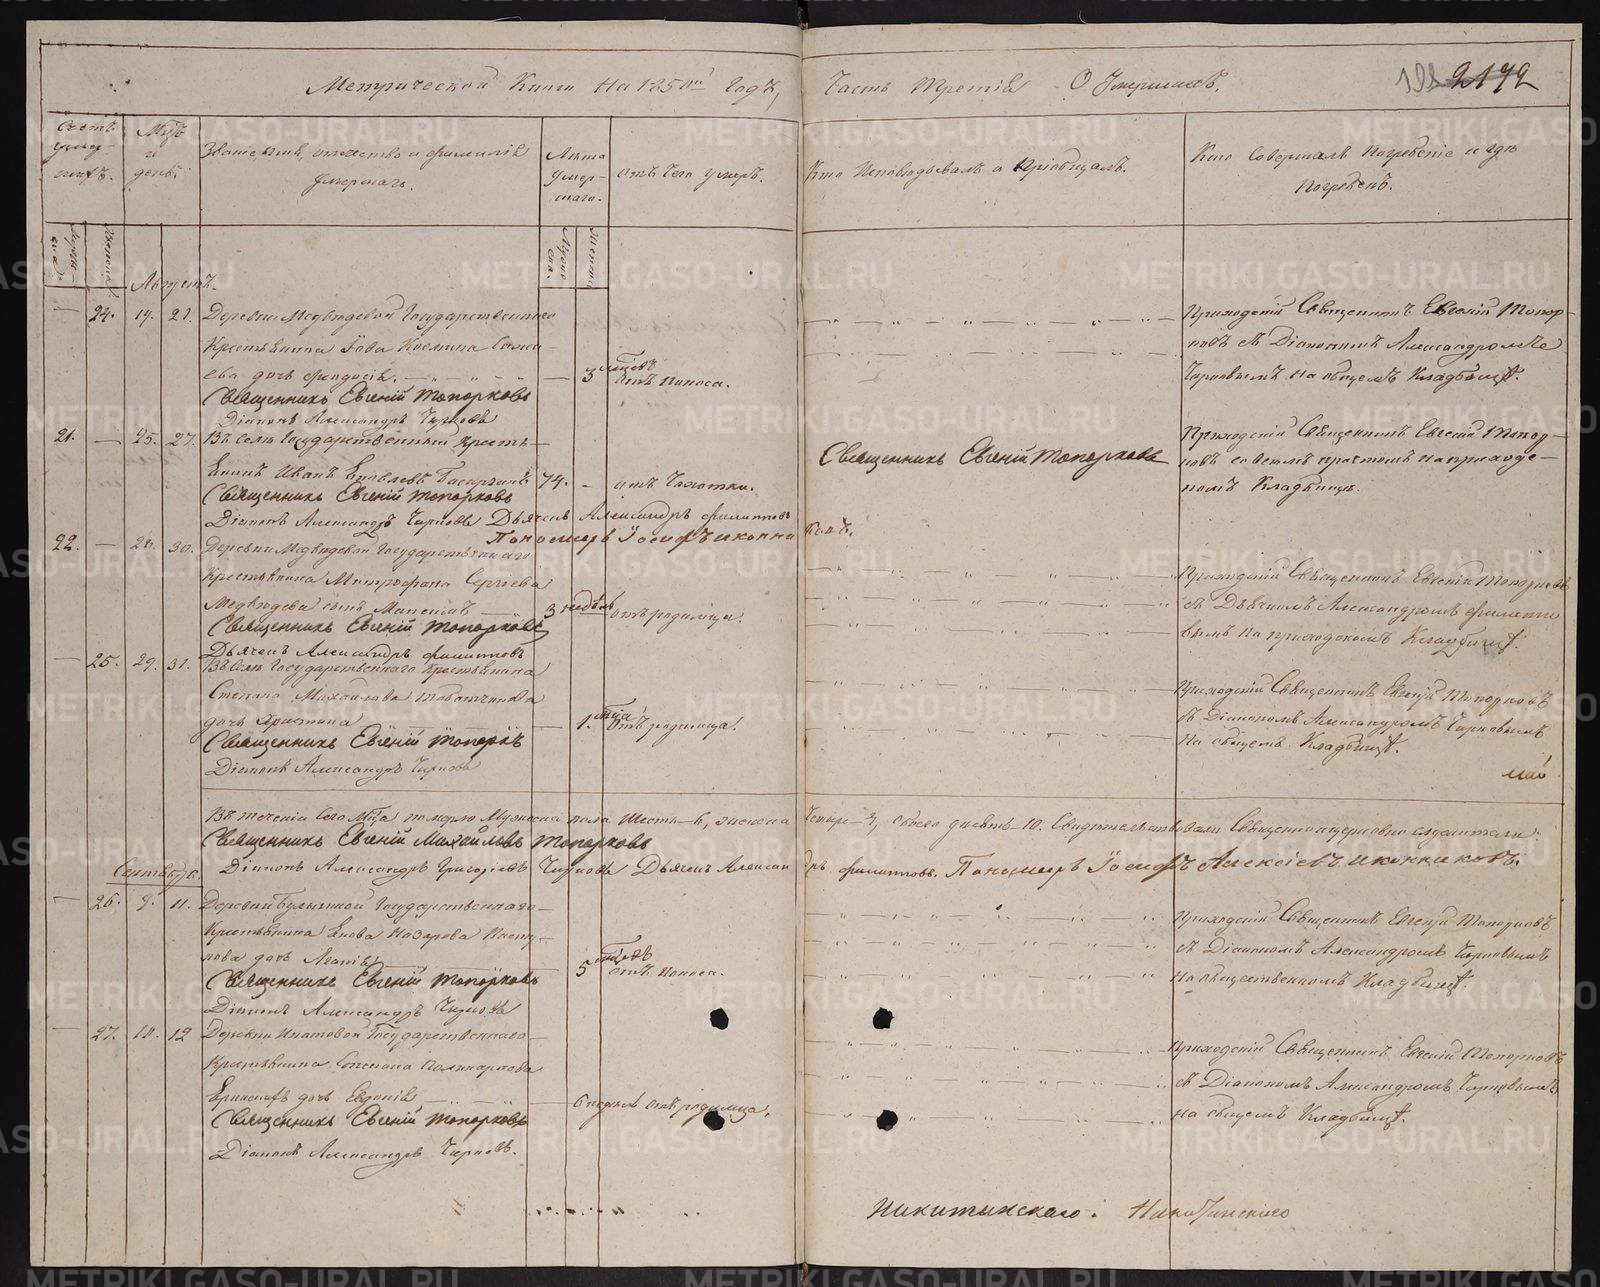 Метрической Книги на 1850й Годъ,
Часть Третія О Умершихъ.
192 2172
Счетъ умер-шихъ.
Мѣсяцъ и день.
Званіе, имя, отчество и фамилія умершаго.
Лѣта умер-шаго.
отъ чего умеръ.
Кто Исповѣдывалъ и Пріобщалъ.
Кто Совершалъ Погребеніе и гдѣ Погребенъ.
Мужеска
Женска
Августъ.
24. 19. 21. Деревни Медвѣдевой Государственнаго
Крестьянина Іова Космина
дочь Феодосія. — 3 отъ поноса.
Священникъ Евгеній Топорковъ
Діаконъ Александръ Чирковъ
Приходскій Священникъ Евгеній Топор-
ковъ съ Діакономъ Александромъ
Чирковымъ на общемъ Кладбищѣ.
21. — 25. 27. Въ Селѣ Государственный Кресть-
янинъ Иванъ Яковлевъ 74. - отъ Чахотки.
Священникъ Евгеній Топорковъ
Діаконъ Александръ Чирковъ Дьячекъ Александръ Филипповъ
Пономарь Іосифъ Иконни
ковъ.
Священникъ Евгеній Топорковъ
Приходскій Священникъ Евгеній Топор-
ковъ со всемъ причтомъ на приходс-
комъ Кладбищѣ.
22. — 28. 30. Деревни Медвѣдевой Государственнаго
Крестьянина Митрофана Сергѣева
Медвѣдева сынъ Максимъ 3 недѣль отъ родимца.
Священникъ Евгеній Топорковъ
Дьячекъ Александръ Филипповъ
Приходскій Священникъ Евгеній Топорковъ
съ Дьячкомъ Александромъ Филиппо
вымъ на приходскомъ Кладбищѣ.
— 25. 29. 31. Въ Селѣ Государственнаго Крестьянина
Степана Михайлова
дочь Христина — 1. отъ родимца.
Священникъ Евгеній Топорковъ
Діаконъ Александръ Чирковъ
Приходскій Священникъ Евгеній Топорковъ
съ Діакономъ Александромъ Чирковымъ
на общемъ Кладбищѣ.
Въ теченіи сего Мѣсяца померло Мужеска пола Шесть-6, женска
Четыре-4, обоего десять-10. Свидетельствовали Священноцерковнослужители:
Священникъ Евгеній Михайловъ Топорковъ
Діаконъ Александръ Григорьевъ Чирковъ Дьячекъ Алексан
дръ Филипповъ. Пономарь Іосифъ Алексіевъ Иконниковъ.
Сентябрь.
— 26. 9. 11. Деревни Государственнаго
Крестьянина Якова Назарова
дочь Агапія 5 отъ поноса.
Священникъ Евгеній Топорковъ
Діаконъ Александръ Чирковъ
Приходскій Священникъ Евгеній Топорковъ
съ Діакономъ Александромъ Чирковымъ
на общественномъ Кладбищѣ.
— 27. 10. 12 Деревни Ипатовой Государственнаго
Крестьянина Степана
дочь Евдокія 6 недѣль отъ родимца.
Священникъ Евгеній Топорковъ
Діаконъ Александръ Чирковъ.
Приходскій Священникъ Евгеній Топорковъ
съ Діакономъ Александромъ Чирковымъ
на общемъ Кладбищѣ.
Никитинскаго. Никитинского
METRIKI.GASO-URAL.RU